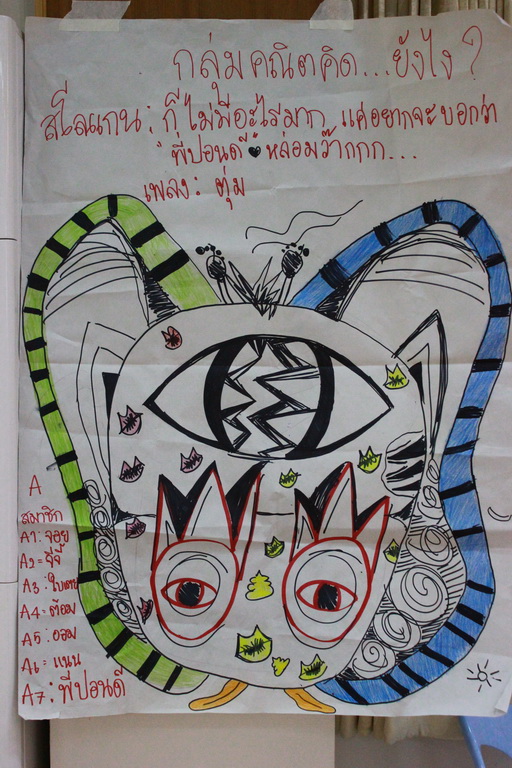 กลุ่มคณิตคิด...ยังไง?
สโลแกน: ก็ไม่มีอะไรมาก แค่อยากจะบอกว่า
"พี่ปอนด์" หล่อมว๊ากกก...
เพลง: ตุ่ม
A
สมาชิก
A1: จอย
A2= จีจี้
A3: ใบเตย
A4= ต้อม
A5: ออม
A6: แนน
A7: พี่ปอนด์